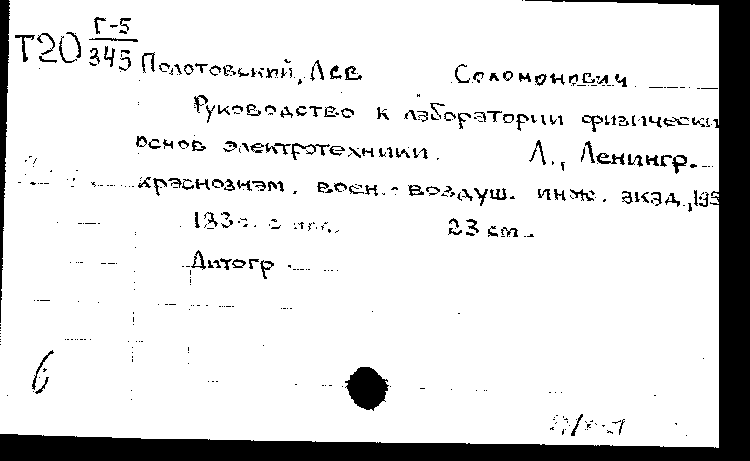 Г-5
Т20 345
Полотовский, Лев Соломонович
Руководство к лаборатории физически
основ электротехники. Л., Ленингр.
краснознам. воен.-воздуш. инж. акад.,
183 с. с илл. 23 см.
Литогр
6